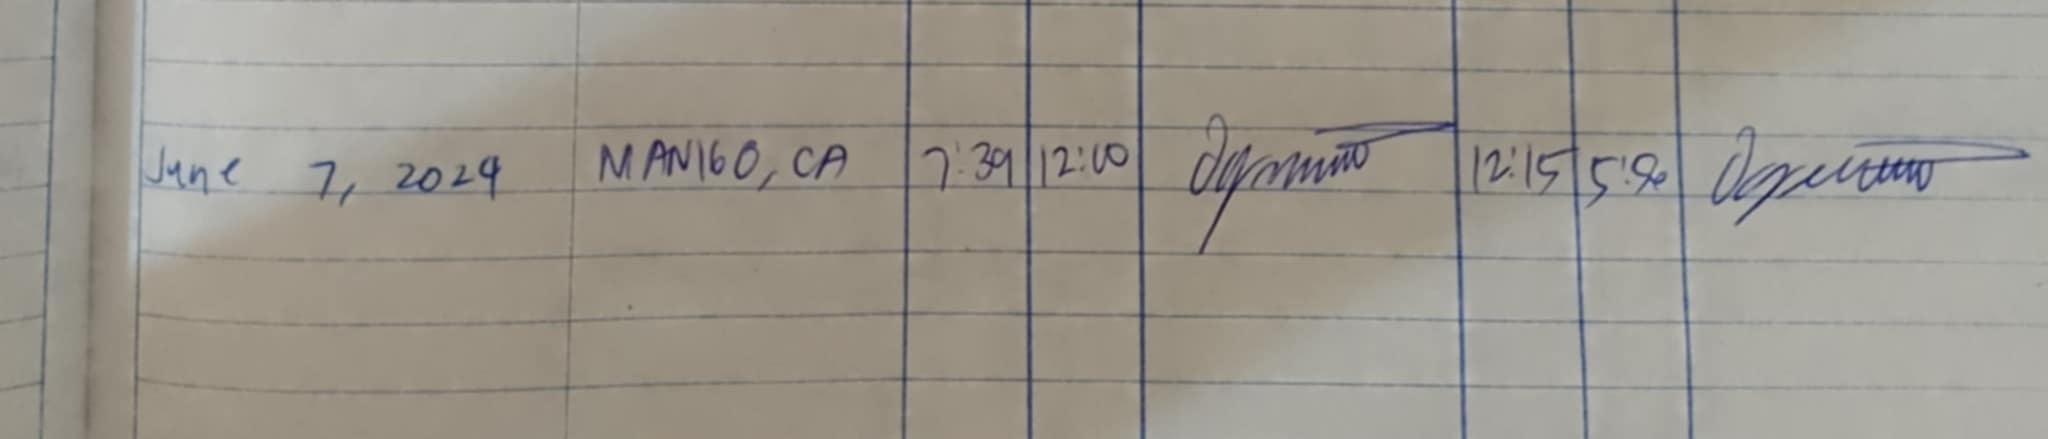 June 7, 2024 MANIGO, CA 7:39 12:00 12:15